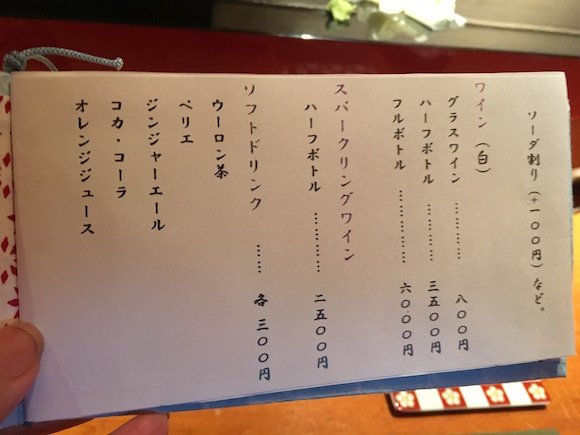 ソーダ割り(+一〇〇円)など。
ワイン(白)
グラスワイン ………… 八〇〇円
ハーフボトル ………… 三五〇〇円
フルボトル …………… 六〇〇〇円
スパークリングワイン
ハーフボトル ………… 二五〇〇円
ソフトドリンク …… 各 三〇〇円
ウーロン茶
ペリエ
ジンジャーエール
コカ・コーラ
オレンジジュース